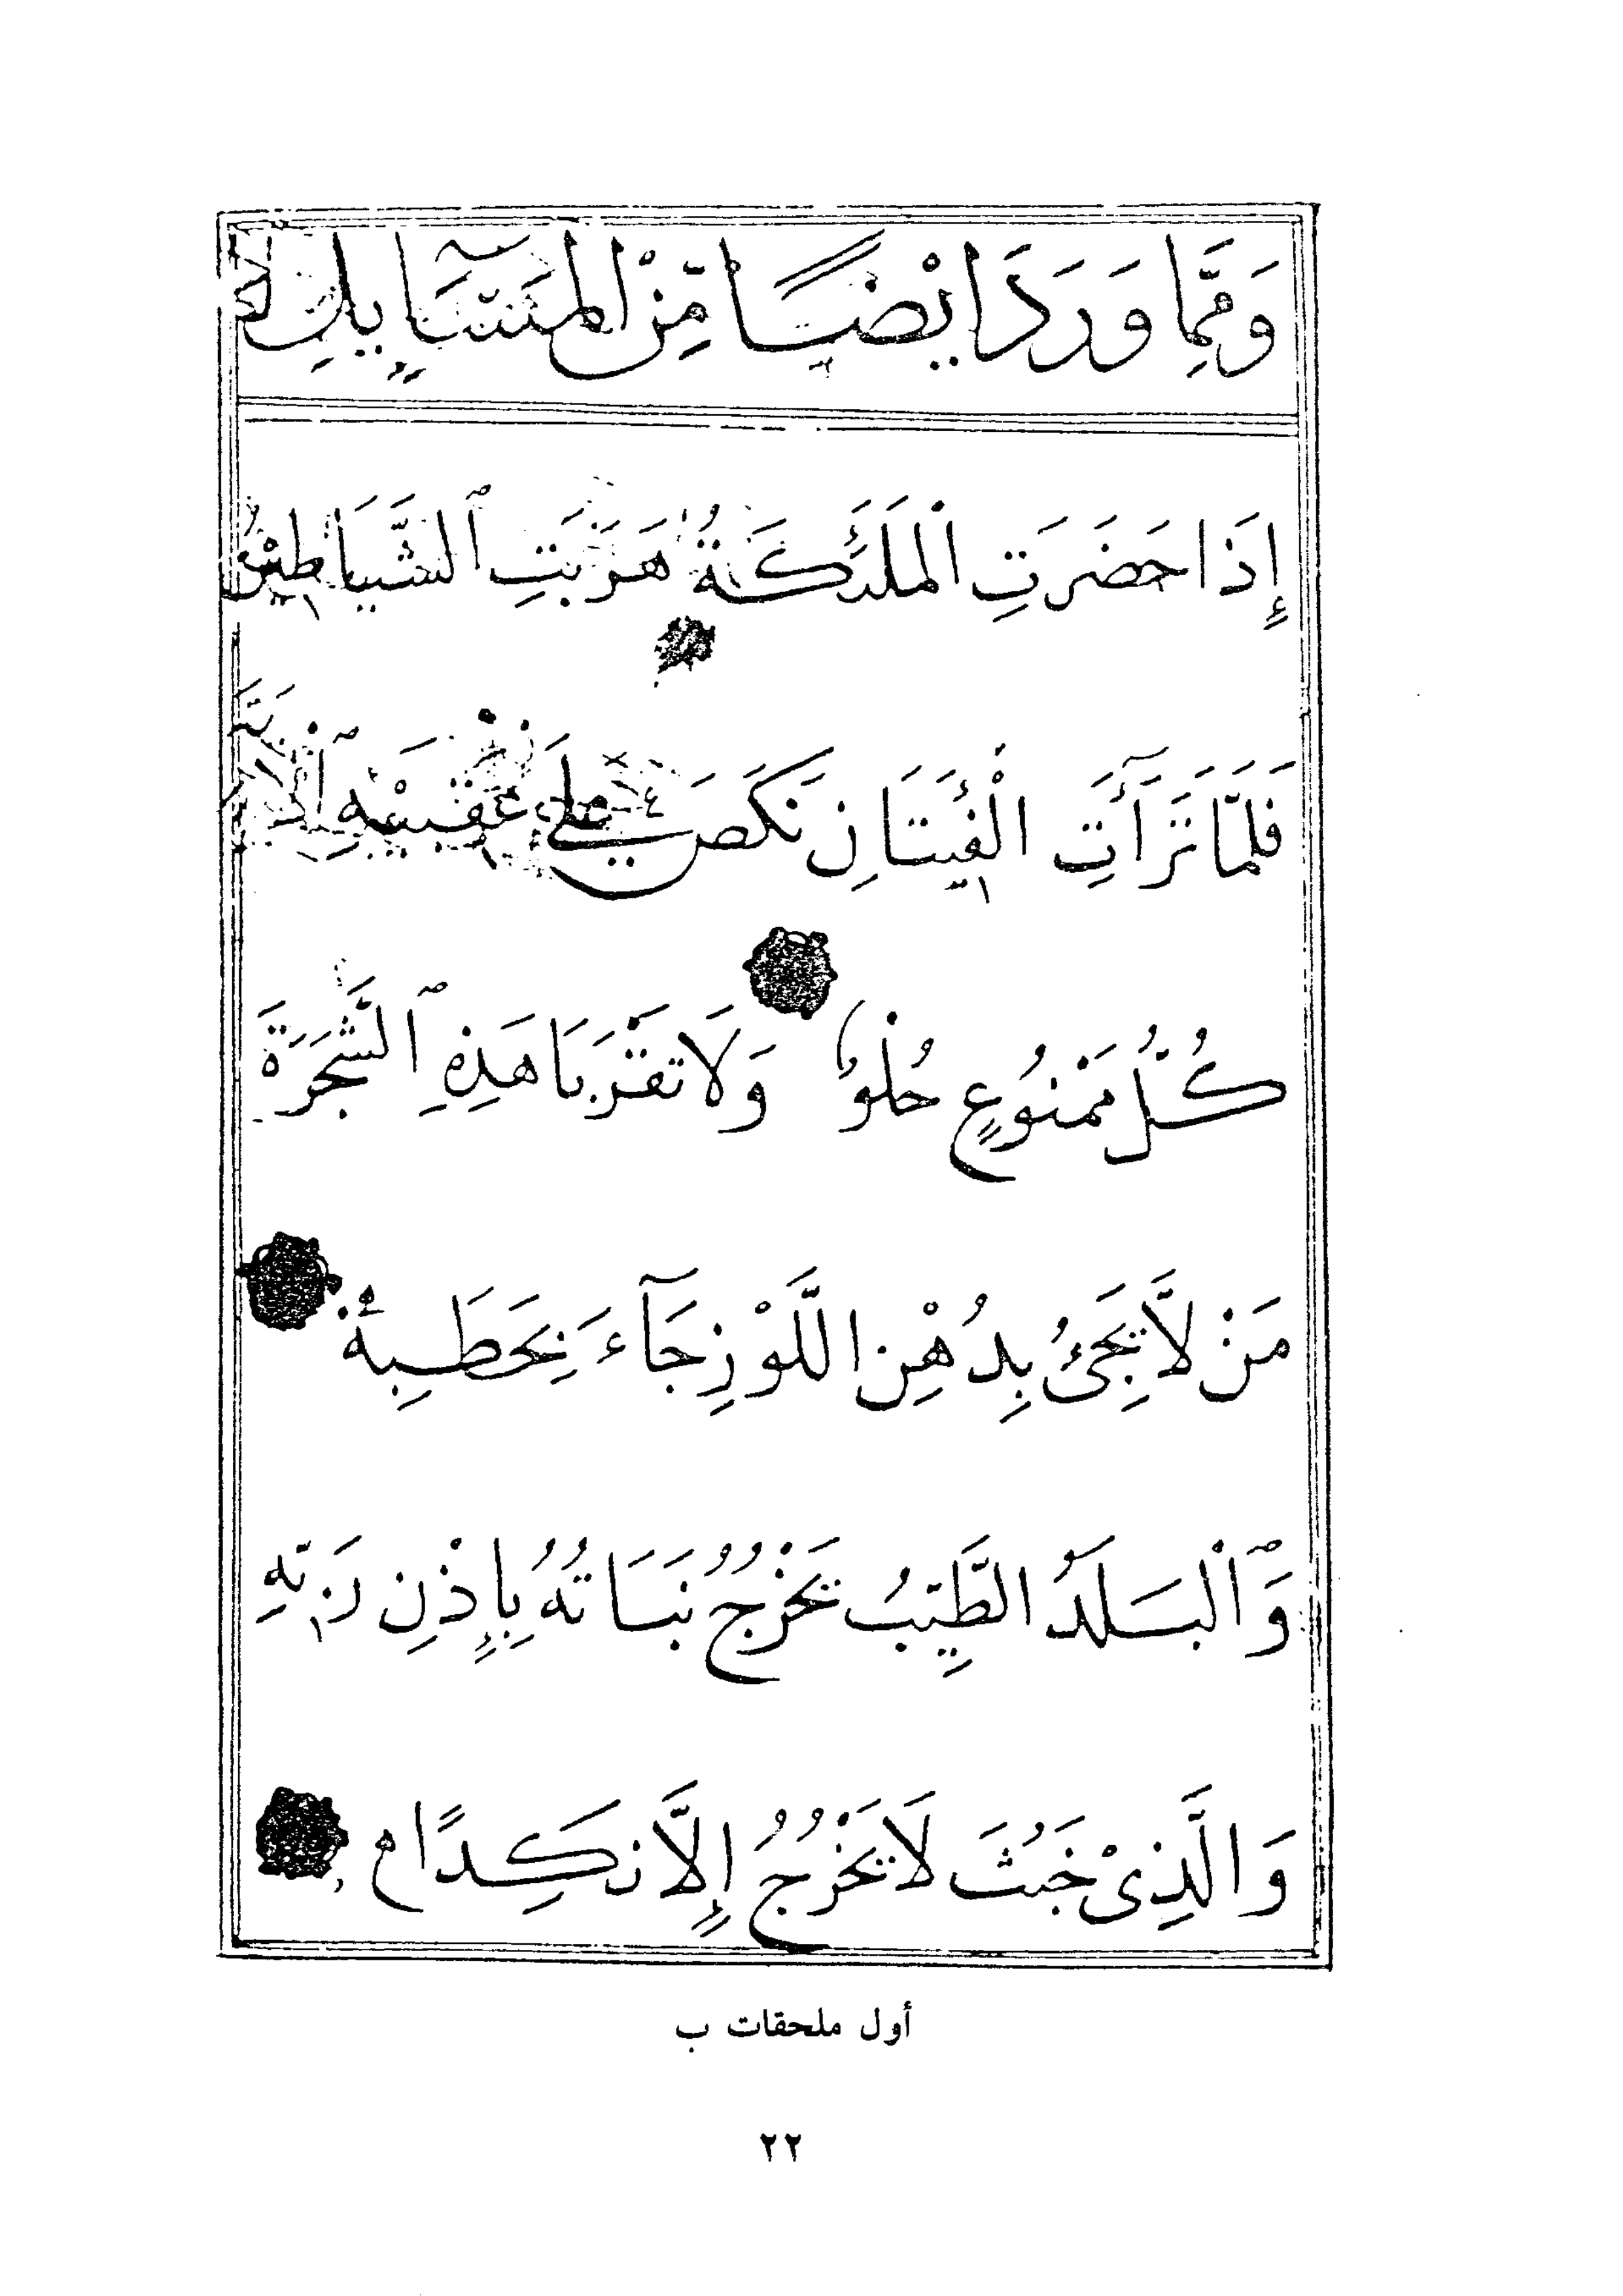 وَمِمَّا وَرَدَ اَيْضًا مِّنْ الْمَسَآيِلِ
إِذَا حَضَرَتِ الْمَلَئِكَةُ هَرَبَتِ ٱلشَّيَاطِيْنُ
فَلَمَّا تَرَآءَتِ الْفِئَتَانِ نَكَصَ عَلَى عَقِبَيْهِ
كُلُّ مَمْنُوعٍ حُلْوٌ وَلَا تَقْرَبَا هَذِهِ ٱلشَّجَرَةَ
مَنْ لَّا يَجِئُ بِدُهْنِ اللَّوْزِ جَآءَ بِحَطَبِهْ
وَٱلْبَلَدُ الطَّيِّبُ يَخْرُجُ نَبَاتُهُ بِإِذْنِ رَبِّهِ
وَالَّذِيْ خَبُثَ لَا يَخْرُجُ إِلَّا نَكِدًا م
أول ملحقات ب
٢٢